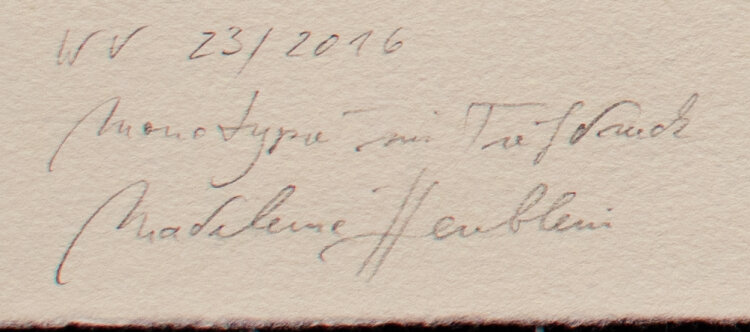 WV 23/2016
Monotypie mit Tiefdruck
Madeleine Heublein